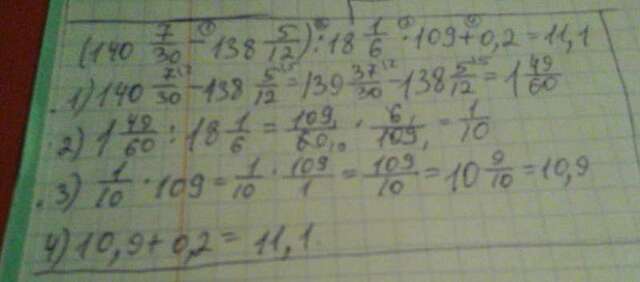 (140 7/30 - 138 5/12) : 18 1/6 · 109 + 0,2 = 11,1
1) 140 7/30 - 138 5/12 = 139 37/30 - 138 5/12 = 1 49/60
2) 1 49/60 : 18 1/6 = 109/60 · 6/109 = 1/10
3) 1/10 · 109 = 1/10 · 109/1 = 109/10 = 10 9/10 = 10,9
4) 10,9 + 0,2 = 11,1